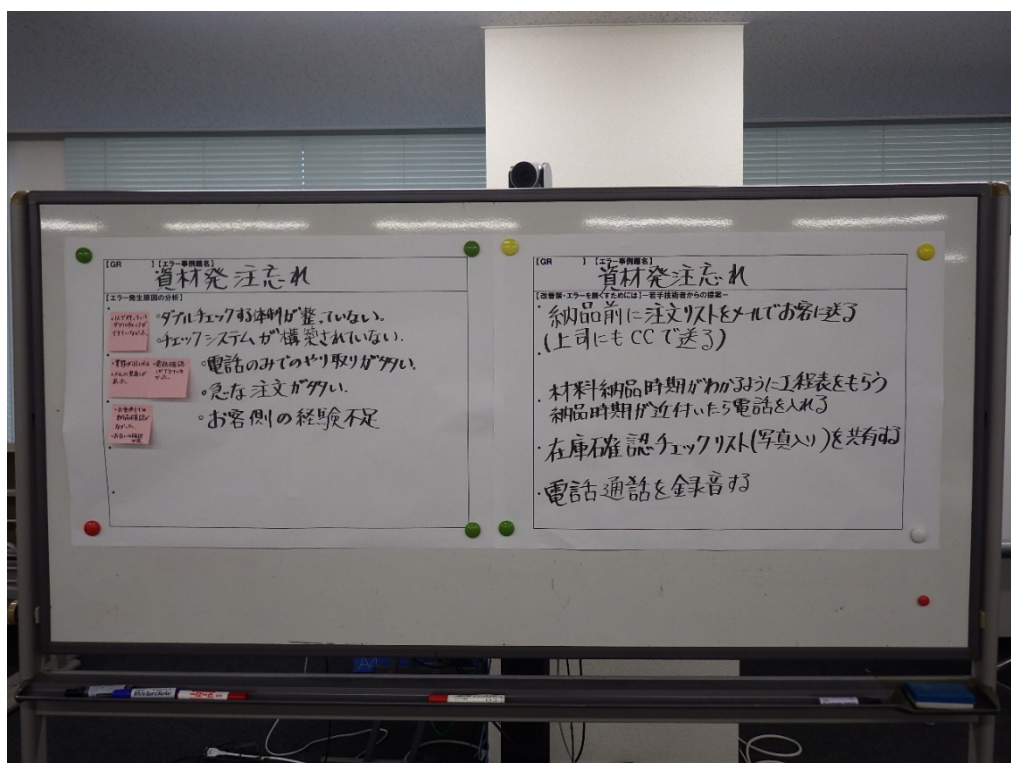 【GR 】【エラー事例題名】
資材発注忘れ
【エラー発生原因の分析】
・ダブルチェックする体制が整っていない。
・チェックシステムが構築されていない。
・電話のみでのやり取りが多い。
・急な注文が多い.
・お客側の経験不足
【GR 】【エラー事例題名】
資材発注忘れ
【改善策・エラーを無くすためには】−若手技術者からの提案−
・納品前に注文リストをメールでお客に送る
(上司にもCCで送る)
・材料納品時期がわかるように工程表をもらう
納品時期が近付いたら電話を入れる
・在庫確認チェックリスト(写真入り)を共有する
・電話通話を録音する